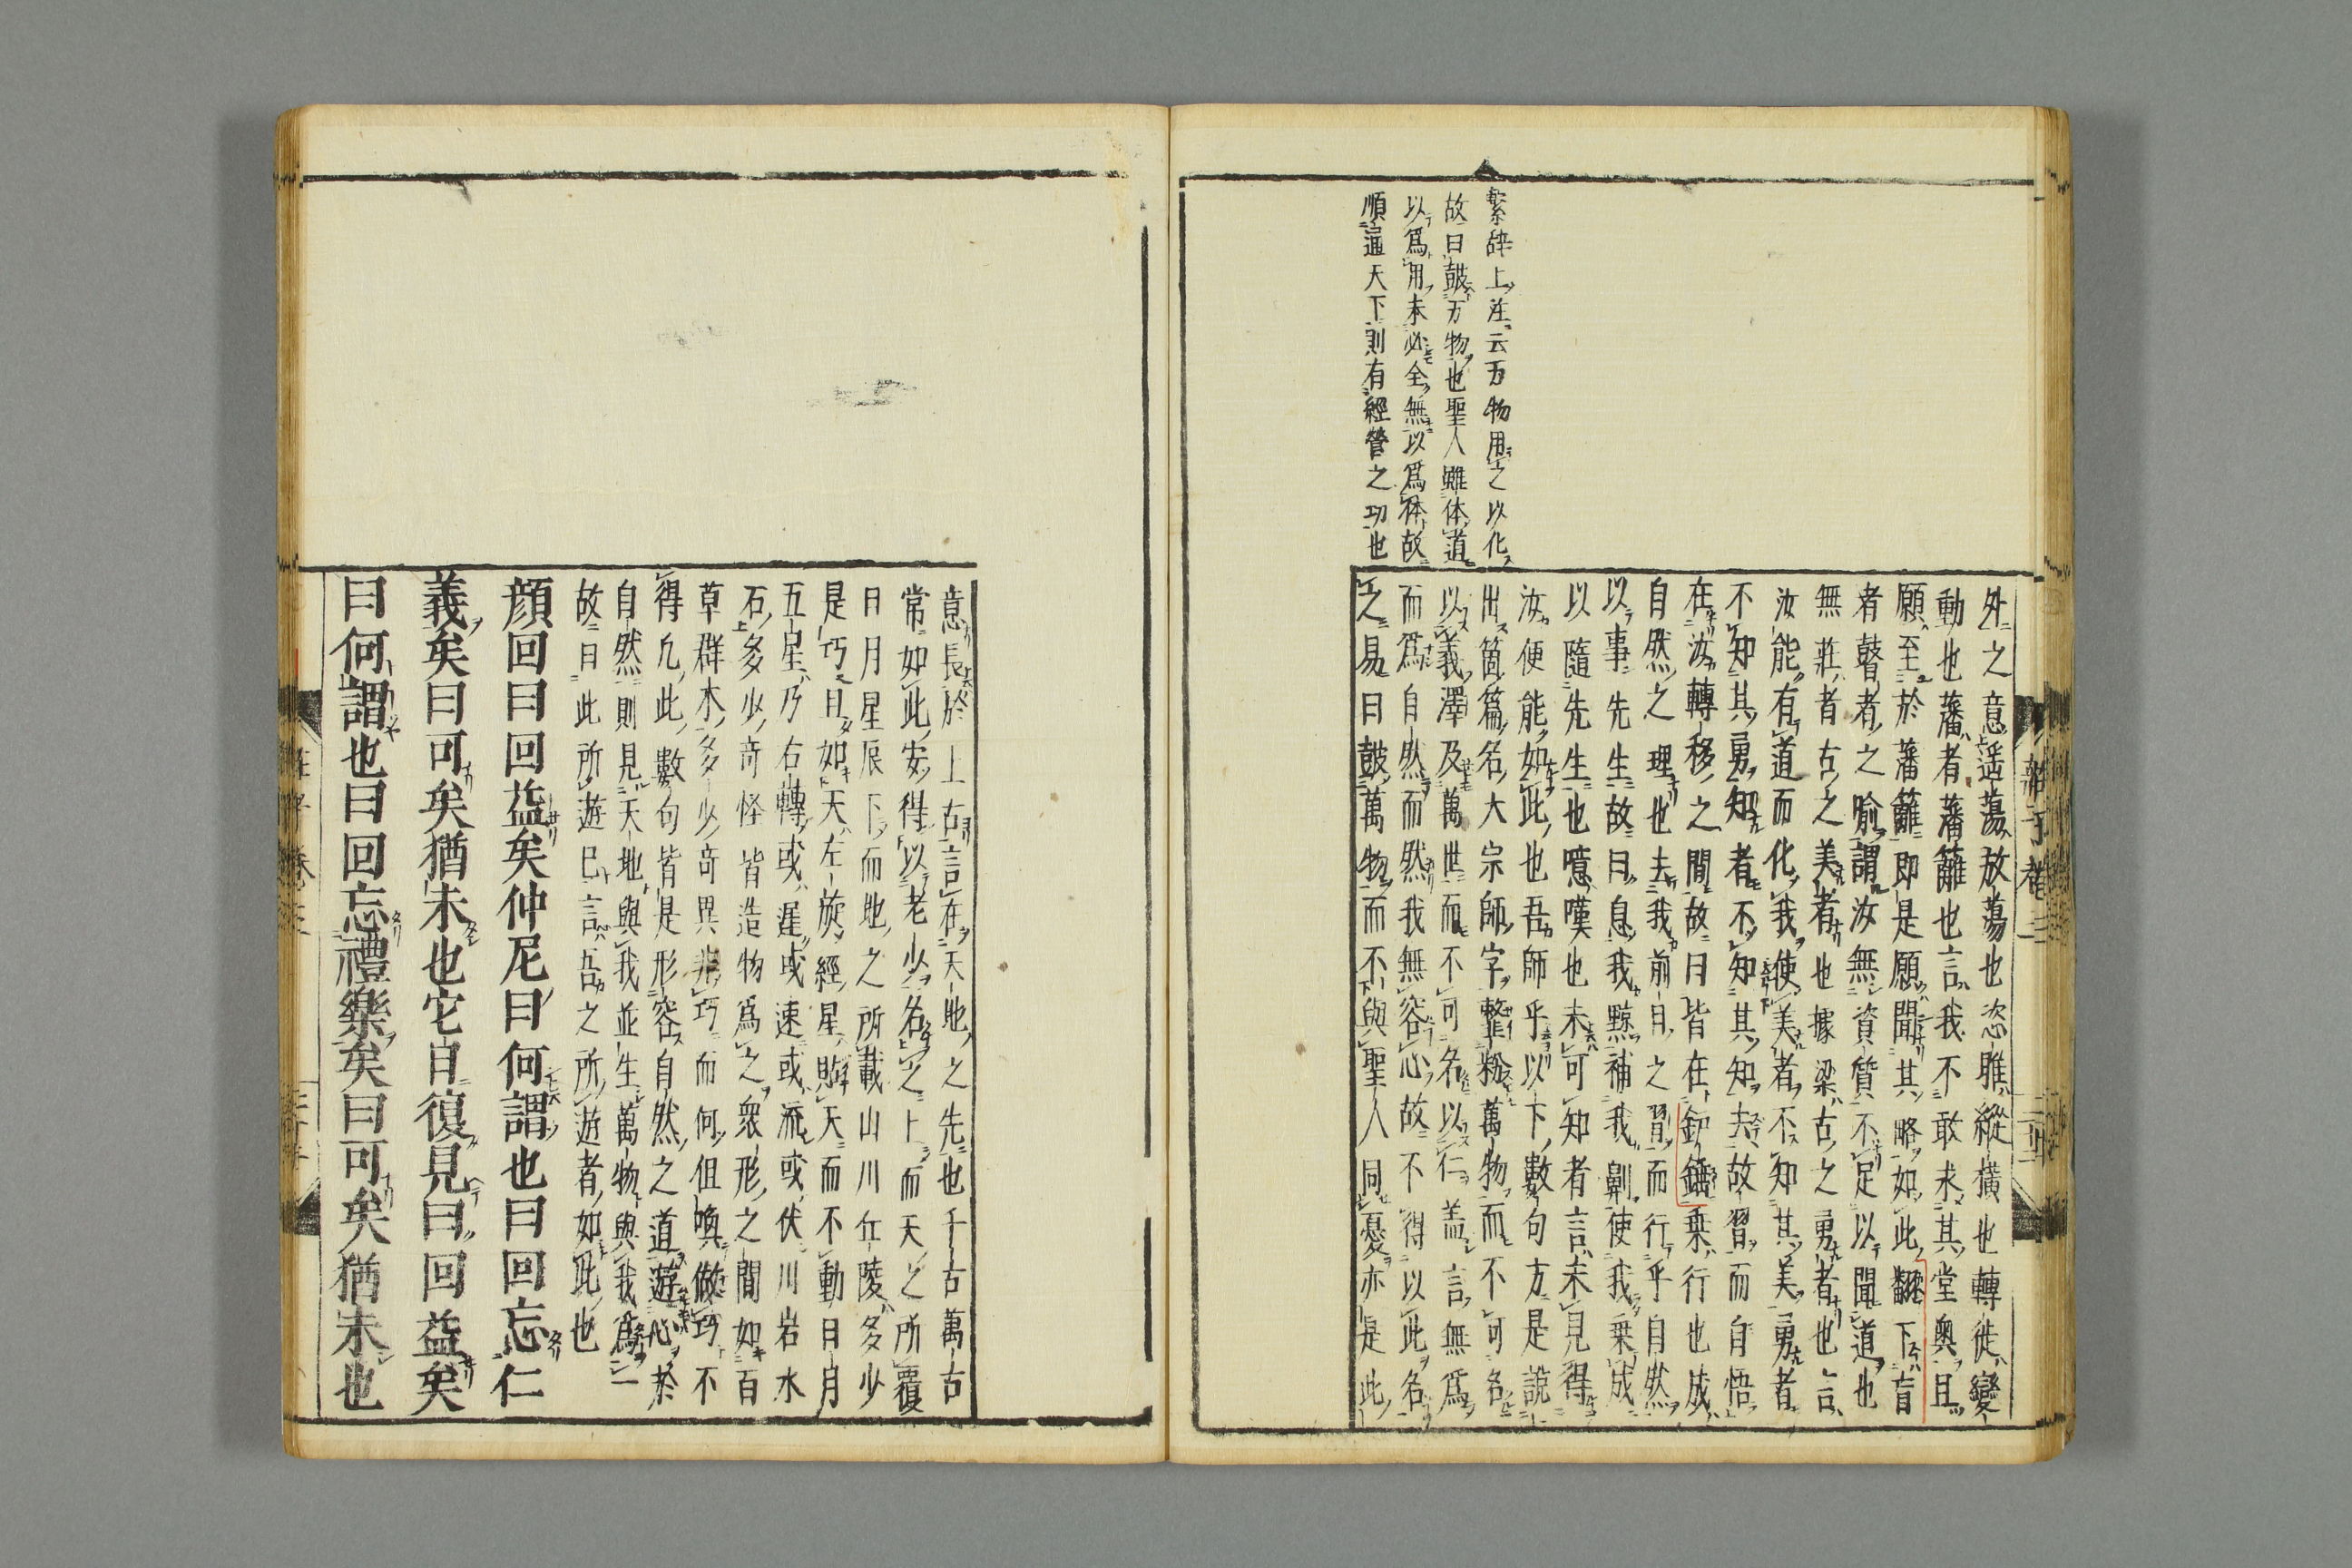 繫辭上注云万物用之以化
故曰鼓万物也聖人雖体道
以爲用未必全無以爲体故
順通天下則有經營之功也
外之意遥蕩放蕩也恣睢縱横也轉徙變
動也藩者藩籬也言我不敢求其堂奥且
願至於藩籬即是願聞其略如此翻下盲
者瞽者之喩謂汝無資質不足以聞道也
無莊者古之美者也據梁古之勇者也言
汝能有道而化我使美者不知其美勇者
不知其勇知者不知其知去故習而自悟
在汝轉移之間故曰皆在鈩錘乗行也成
自然之理也去我前日之習而行乎自然
以事先生故曰息我黥補我劓使我乗成
以隨先生也噫嘆也未可知者言未見得
汝便能如此也吾師乎以下數句方是說
出箇篇名大宗師字韲粉萬物而不可名
以義澤及萬世而不可名以仁盖言無爲
而爲自然而然我無容心故不得以此名
之易曰鼓萬物而不與聖人同憂亦是此
意長於上古言在天地之先也千古萬古
常如此安得以老少名之上而天之所覆
日月星辰下而地之所載山川丘陵多少
是巧且如天左旋經星貼天而不動日月
五星乃右轉或遅或速或流或伏川岩水
石多多少奇怪皆造物爲之衆形之間如百
草群木多少奇異非巧而何但喚做巧不
得凢此數句皆是形容自然之道遊心於
自然則見天地與我並生萬物與我爲一
故曰此所遊已言吾之所遊者如此也
顔回曰回益矣仲尼曰何謂也曰回忘仁
義矣曰可矣猶未也它日復見曰回益矣
曰何謂也曰回忘禮樂矣曰可矣猶未也